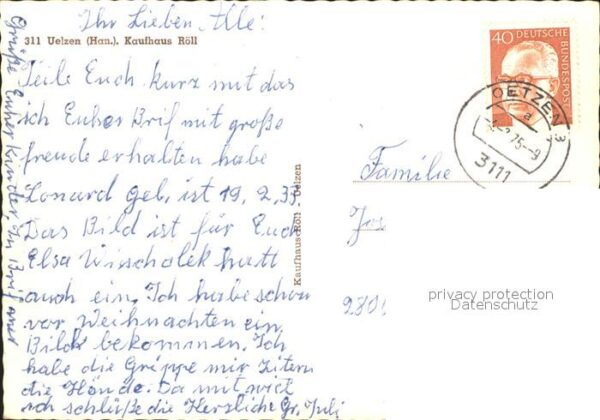 Ihr Lieben Alle!
311 Uelzen (Han.). Kaufhaus Röll
Teile Euch kurz mit das
ich Euher Brif mit große
freude erhalten habe
Lonard geb, ist 19, 2, 35,
Das Bild ist für Euch
Elsa hatt
auch ein, Ich habe schon
vor Weihnachten ein
Bild bekommen. Ich
habe die Grippe mir Zitern
die Hände. Da mit will
ich schlüße die Herzliche Gr, Juli
Grüße Euher Kinder In Brif
Kaufhaus Röll - Uelzen
40 DEUTSCHE BUNDESPOST
OETZEN
a
75-9
3111
Familie
Jos
280
privacy protection
Datenschutz